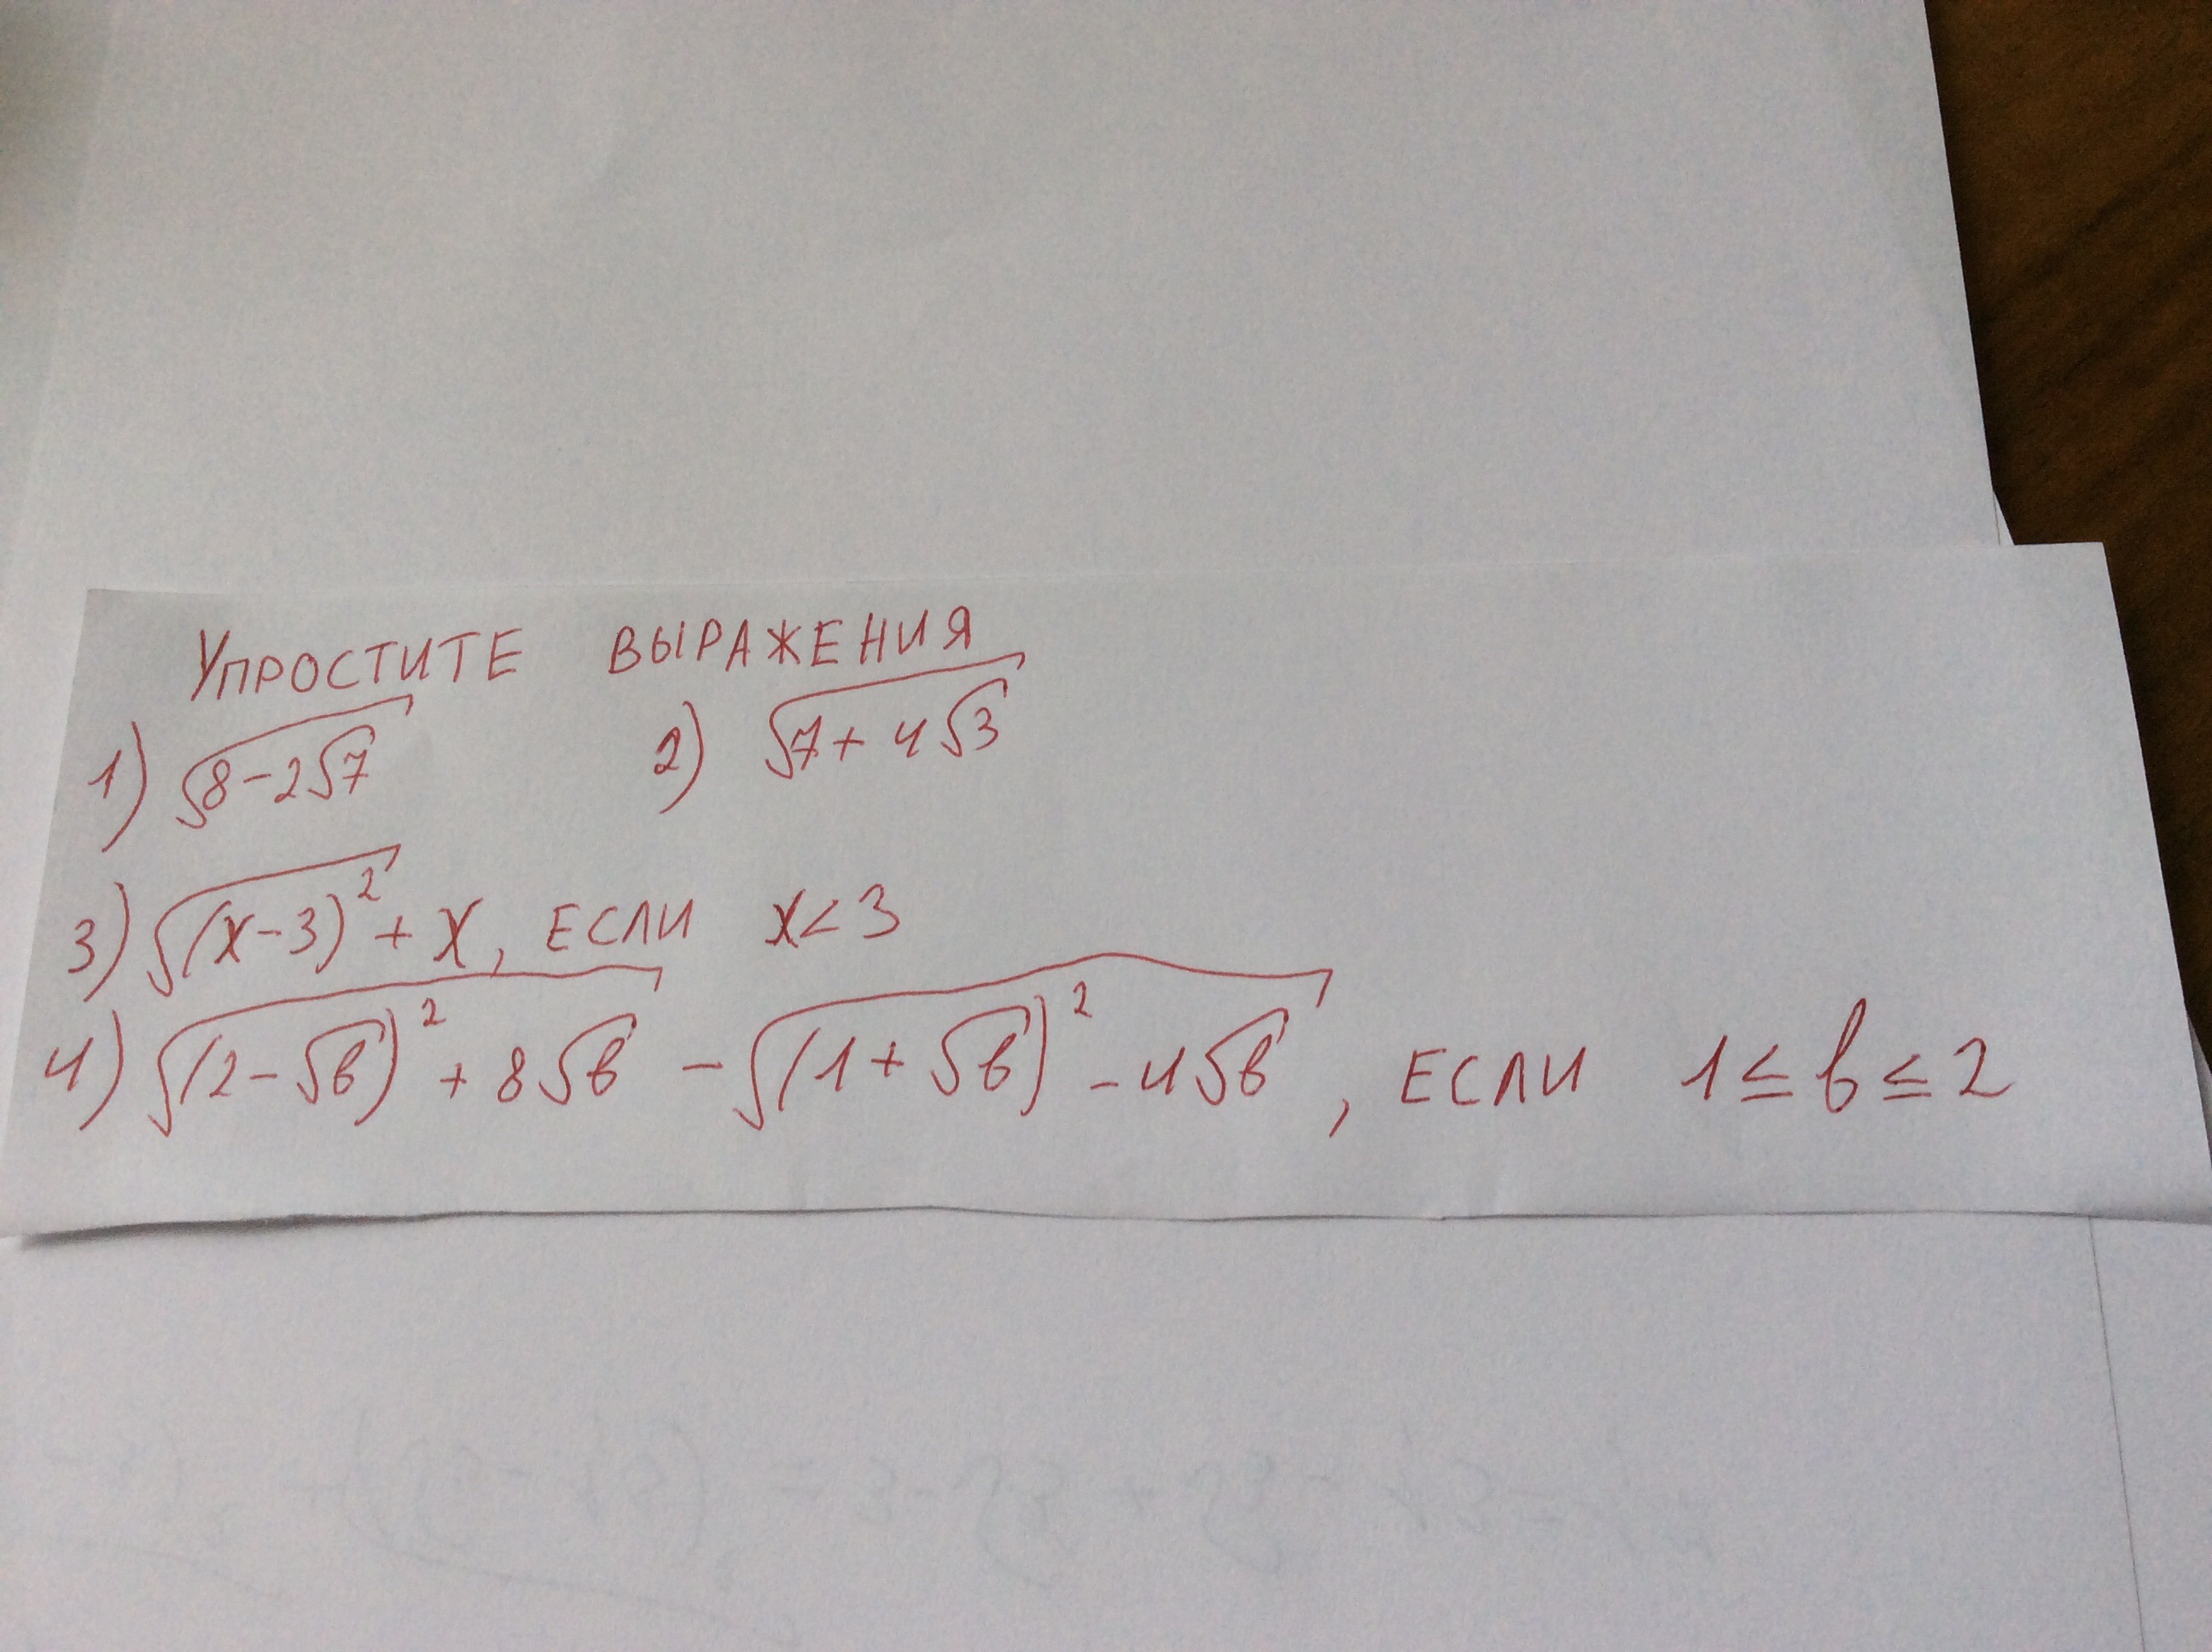 УПРОСТИТЕ ВЫРАЖЕНИЯ
1) √(8-2√7) 2) √(7+4√3)
3) √((x-3)²) + x, ЕСЛИ x<3
4) √((2-√в)² + 8√в) - √((1+√в)² - 4√в), ЕСЛИ 1≤в≤2